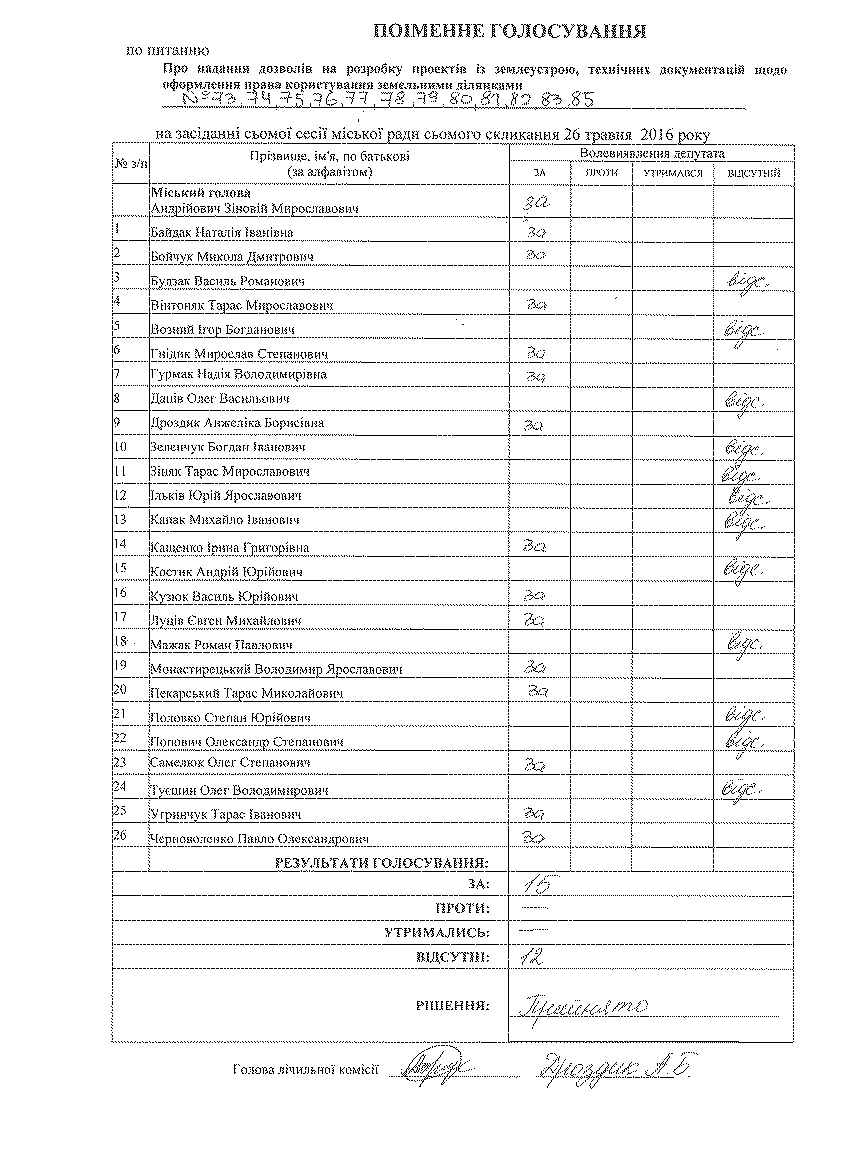 ПОІМЕННЕ ГОЛОСУВАННЯ
по питанню
Про надання дозволів на розробку проектів із землеустрою, технічних документацій щодо
оформлення права користування земельними ділянками
№73, 74, 75, 76, 77, 78, 79, 80, 81, 82, 83, 85
на засіданні сьомої сесії міської ради сьомого скликання 26 травня 2016 року
№ з/п Прізвище, ім'я, по батькові Волевиявлення депутата
(за алфавітом) ЗА ПРОТИ УТРИМАВСЯ ВІДСУТНІЙ
Міський голова
Андрійович Зіновій Мирославович за
1 Байдак Наталія Іванівна за
2 Бойчук Микола Дмитрович за
3 Будзак Василь Романович відс.
4 Вінтоняк Тарас Мирославович за
5 Возний Ігор Богданович відс.
6 Гнідик Мирослав Степанович за
7 Гурмак Надія Володимирівна за
8 Даців Олег Васильович відс.
9 Дроздик Анжеліка Борисівна за
10 Зеленчук Богдан Іванович відс.
11 Зіняк Тарас Мирославович відс.
12 Ільків Юрій Ярославович відс.
13 Капак Михайло Іванович відс.
14 Кащенко Ірина Григорівна за
15 Костик Андрій Юрійович відс.
16 Кузюк Василь Юрійович за
17 Луців Євген Михайлович за
18 Мажак Роман Павлович відс.
19 Монастирецький Володимир Ярославович за
20 Пекарський Тарас Миколайович за
21 Половко Степан Юрійович відс.
22 Попович Олександр Степанович відс.
23 Самелюк Олег Степанович за
24 Туєшин Олег Володимирович відс.
25 Угринчук Тарас Іванович за
26 Черноволенко Павло Олександрович за
РЕЗУЛЬТАТИ ГОЛОСУВАННЯ:
ЗА: 15
ПРОТИ: —
УТРИМАЛИСЬ: —
ВІДСУТНІ: 12
РІШЕННЯ: Прийнято
Голова лічильної комісії Дроздик А.Б.